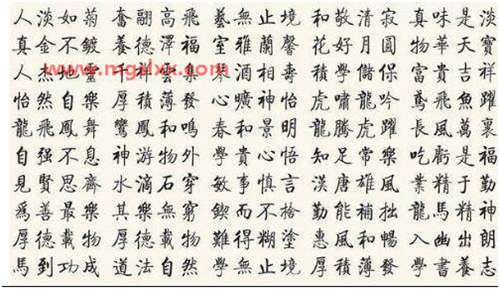 人淡如菊 奮翮高飛 藝無止境 和敬清寂 真味是淡
真金不鍍 養德澤福 室雅蘭馨 花好月圓 物華天寶
人杰地靈 富貴吉祥
怡然自樂 厚積薄發 心曠神怡 虎嘯龍吟 鳶飛魚躍
龍飛鳳舞 鸞鳳和鳴 春和景明 龍騰虎躍 長風萬裏
自强不息 神游物外 學貴心悟 知足常樂 吃虧是福
見賢思齊 水滴石穿 敏事慎言 漢唐雄風 業精于勤
爲善最樂 其樂無窮 鍥而不捨 勤能補拙 龍馬精神
厚德載物 厚德載物 難得糊塗 惠風和暢 入幽出朗
馬到功成 道法自然 學無止境 厚積薄發 學書養志